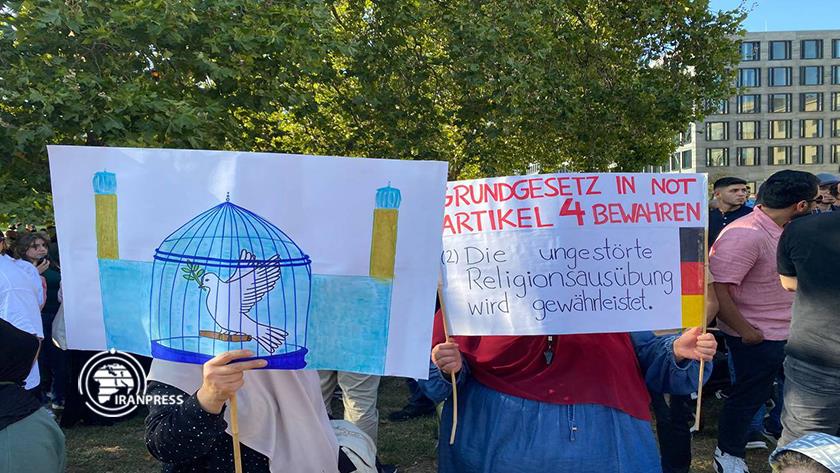 GRUNDGESETZ IN NOT
ARTIKEL 4 BEWAHREN
(2) Die ungestörte
Religionsausübung
wird gewährleistet.
IRANPRESS